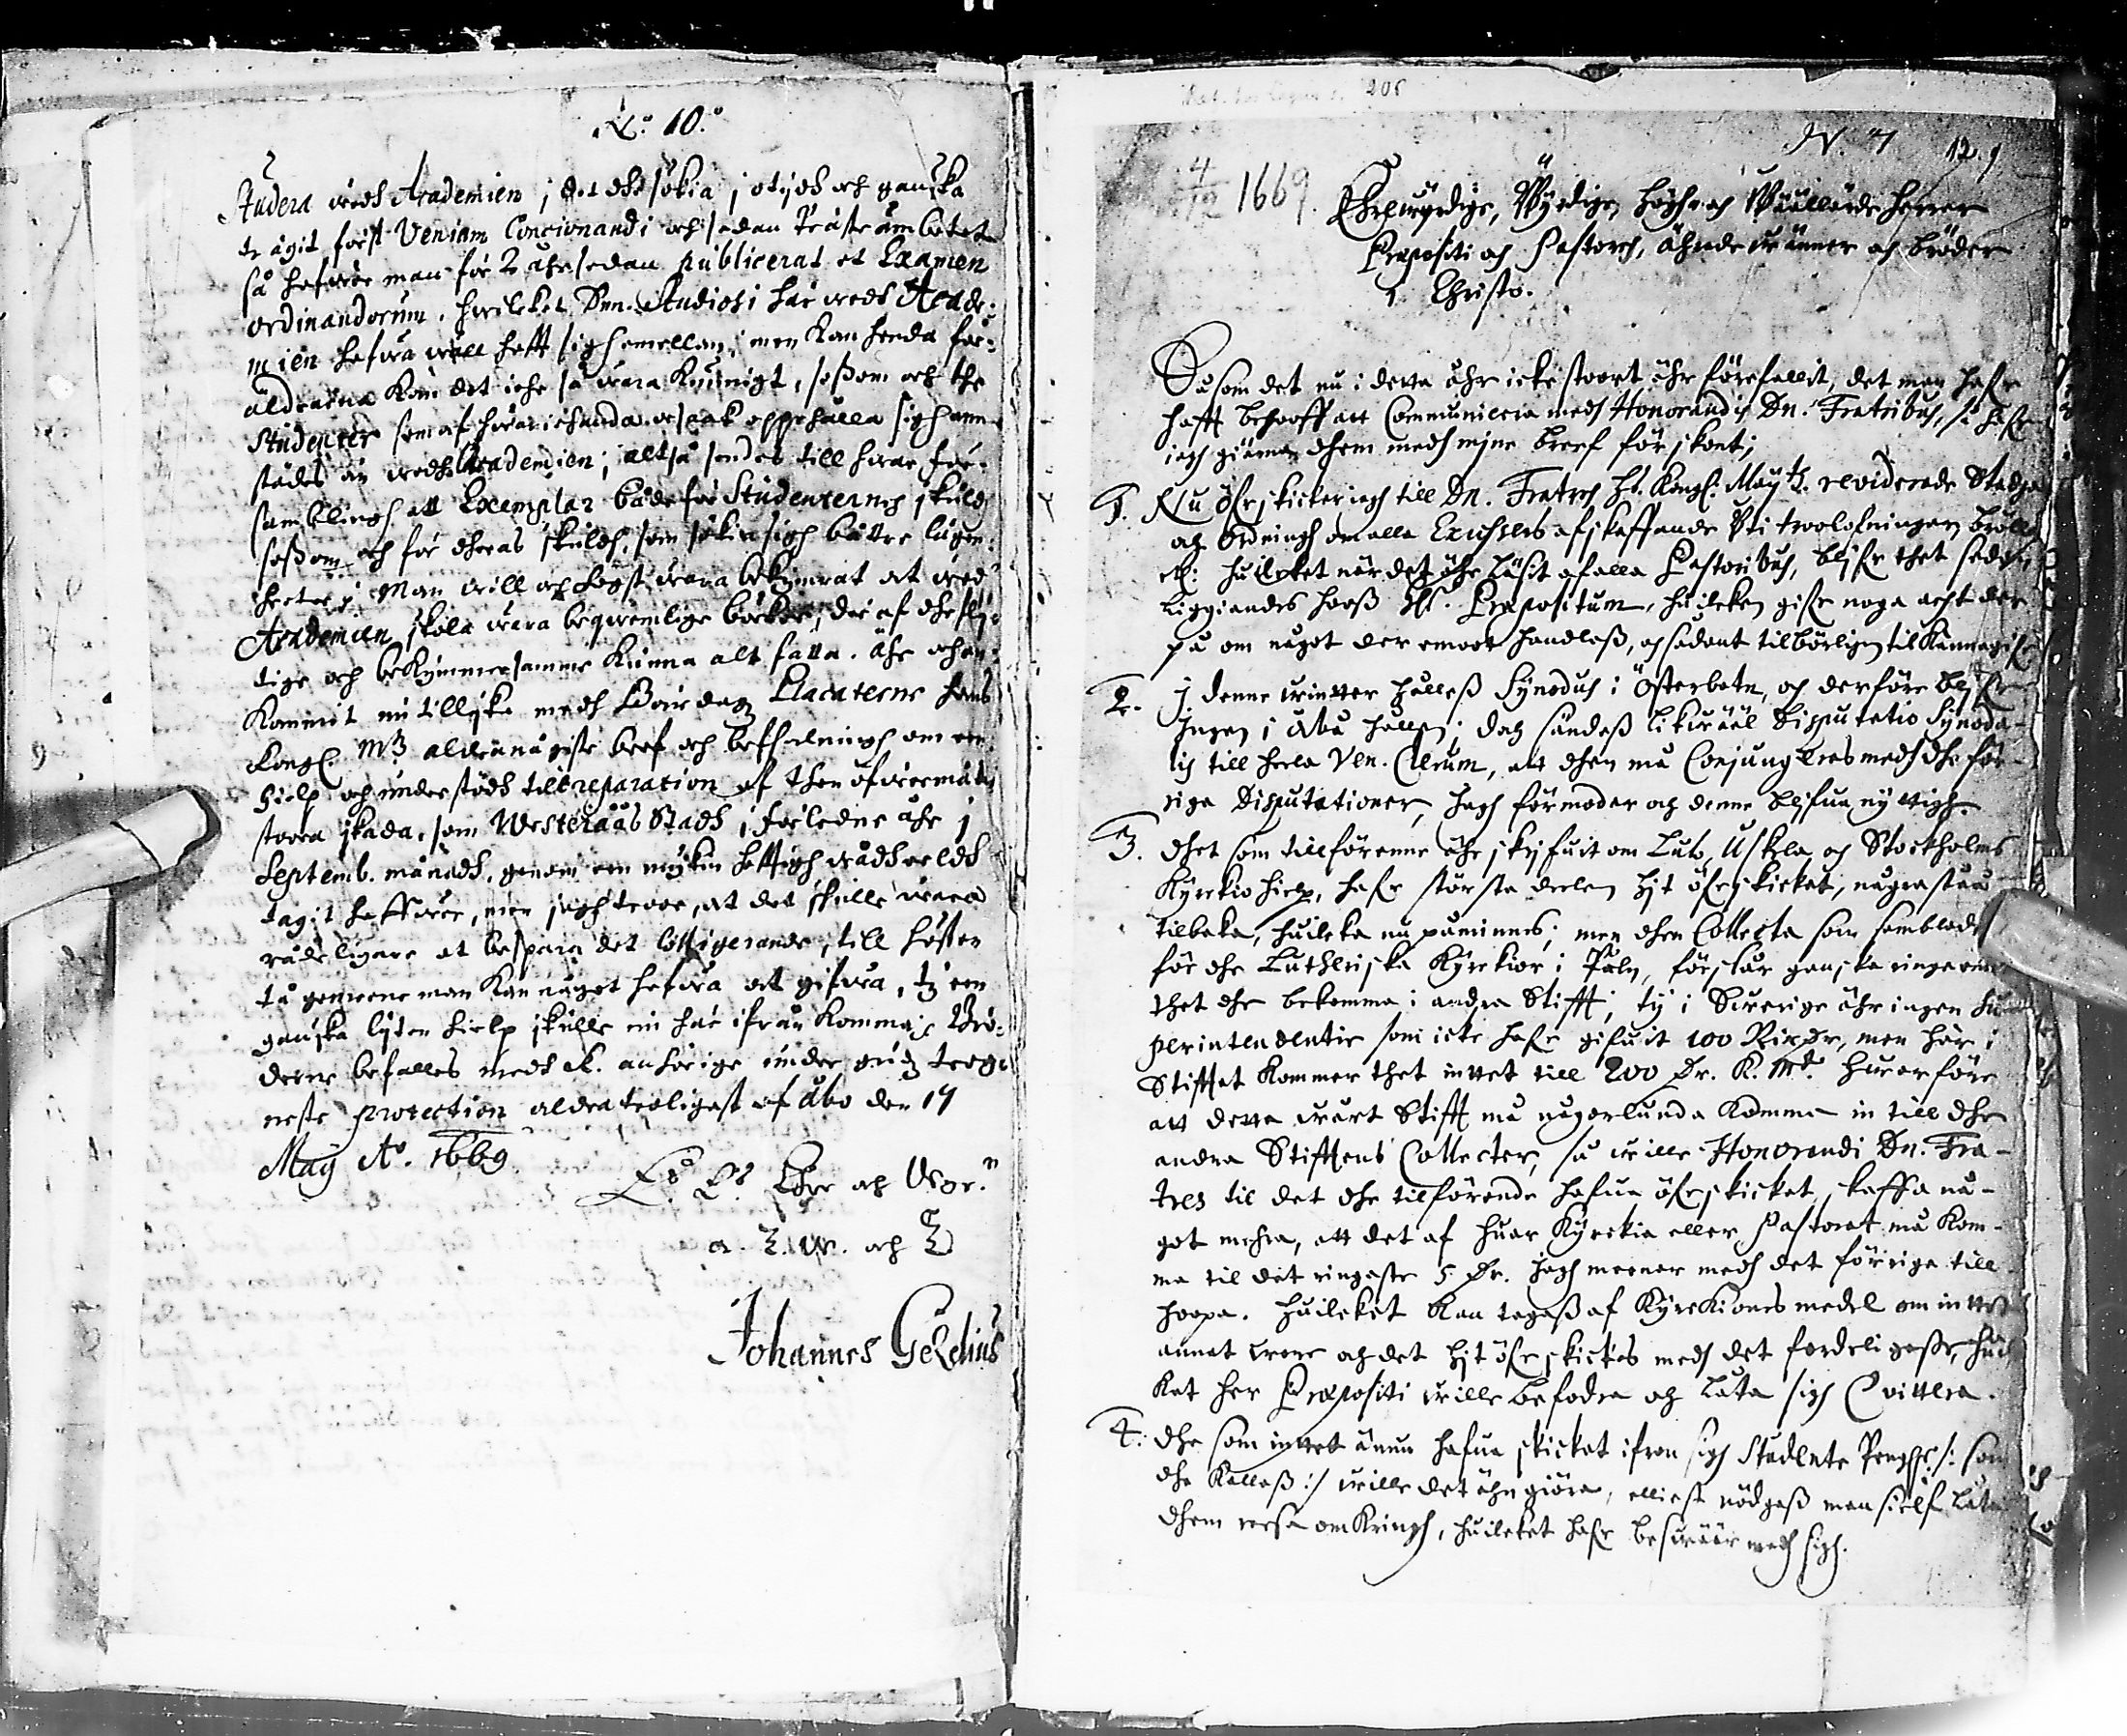 N:o 10.o
Studera widh Academien; det the sökia i otijdh och ganska
trägit först Veniam Concionandi och sedan Prästeämbetet
så hafwer man för 2 åhr sedan publicerat et Examen
ordinandorum, hwilcket Dnn. Studiosi här wedh Acade-
mien hafwa wäll hafft sigh emellan, men kan henda för-
äldrarna kan det icke så wara kunnigt, såsom och the
Studenter som af hwariehanda orsaak oppehålla sigh ann-
städes än wedh Academien; altså sendes till hwar för-
samblingh ett Exemplar både för Studenternes skuld
såsom och för theras skuldh, som sökia sigh bättre lägen-
heeter; Man will och högst wara bekymrat at wed
Academien skola wara beqwemlige böcker, der af the fly-
tige och bekymmersamme kunna alt fatta. Ähr och an-
kommit nu tillijka medh Böndagz Placaterne hans
Kongl. M:tz aldranådigste breef och befhalningh om een
hielp och understödh till reparation af then öfwermåttan
stoora skada, som Westerååhs Stadh i förledne åhr i
Septemb. månadh, genom een mycken hefftigh wådheeldh
tagit haffwer, men iagh troor, at det skulle wara
rådeligare at bespara det till hösten
tå gemeene man kan något hafwa att gifwa, ty een
ganska lijten hielp skulle nu här ifrån komma; Brö-
derne befalles medh k. anhörige under gudz trog-
neste protection aldratroligast af Åbo den 14
Maij A:o 1669.
E:s E:s Ehre och Wyr.
a. T. W. och T
Johannes Gezelius
206
N. 7
12. 9
4/12 1669.
Ehrewyrdige, Wyrdige, Högh- och Wäällärde Herrar
Præpositi och Pastores, ährade wänner och bröder
i Christo.
Såsom det nu i detta åhr icke stoort ähr förefallit, det man hafr
hafft behooff att Communicera medh Honorandis Dn. Fratribus, så hafr
iagh giärna them medh mine breef förskont;
1. Nu öfrskickar iagh till Dn. Fratres Hs. Kongl. May:tz. reviderade Stadga
och Ordningh om alla Excessers afskaffande wti trooloffningar, bröllop
etc: huilcket när det ähr läsit af alla Pastoribus, blifr thet sedan
liggiandes hooss Hr. Præpositum, huilcken gifr noga acht der
på om något der emoot handlass, och sådant tilbörligen tilkännagifr
2. I denne winter hålless Synodus i Österbotn, och derföre blifr
Ingen i Åbo hållen; doch sändess likwääl Disputatio Synoda-
lis till heela Ven. Clerum, att then må Conjungeres medh the för-
rige Disputationer, Jagh förmodar och denne blifwa nyttigh.
3. Thet som tillförenne ähr skrifuit om Lutz, Uskela och Stockholms
Kyrckio hielp, hafr största deelen hijt öfrskickat, några stå
tilbaka, huilcka nu påminnes; men then Collecta som samblades
för the Lutherska Kyrckior i Påln, förslår ganska ringa emot
thet the bekomma i andra Stifft, ty i Swerige ähr ingen Su-
perintendentie som icke hafr gifuit 100 Rixdr, men här i
Stifftet kommer thet intet till 200 Dr. K. M:t. Hwarföre
att detta wårt Stifft må någorlunda komma in till the
andra Stifftens Collecter, så wille Honorandi Dn. Fra-
tres til det the tilförende hafua öfrskickat, skaffa nå-
got mehra, att det af huar Kyrckia eller Pastorat må kom-
ma til det ringaste 5 Dr. Jagh meener medh det förrige till
hoopa. Huilcket kan tagess af Kyrckiones medel om intet
annat wore och det hijt öfrskickes medh det fordeligaste, huil-
ket her Præpositi wille befodra och låta sigh Qvittera.
4. The som intet ännu hafua skickat ifrån sigh Studente Penghr /: som
the kallass :/ wille det ähn giöra, elliest nödgass man sielf låta
them reesa omkringh, huilcket hafr beswäär medh sigh.